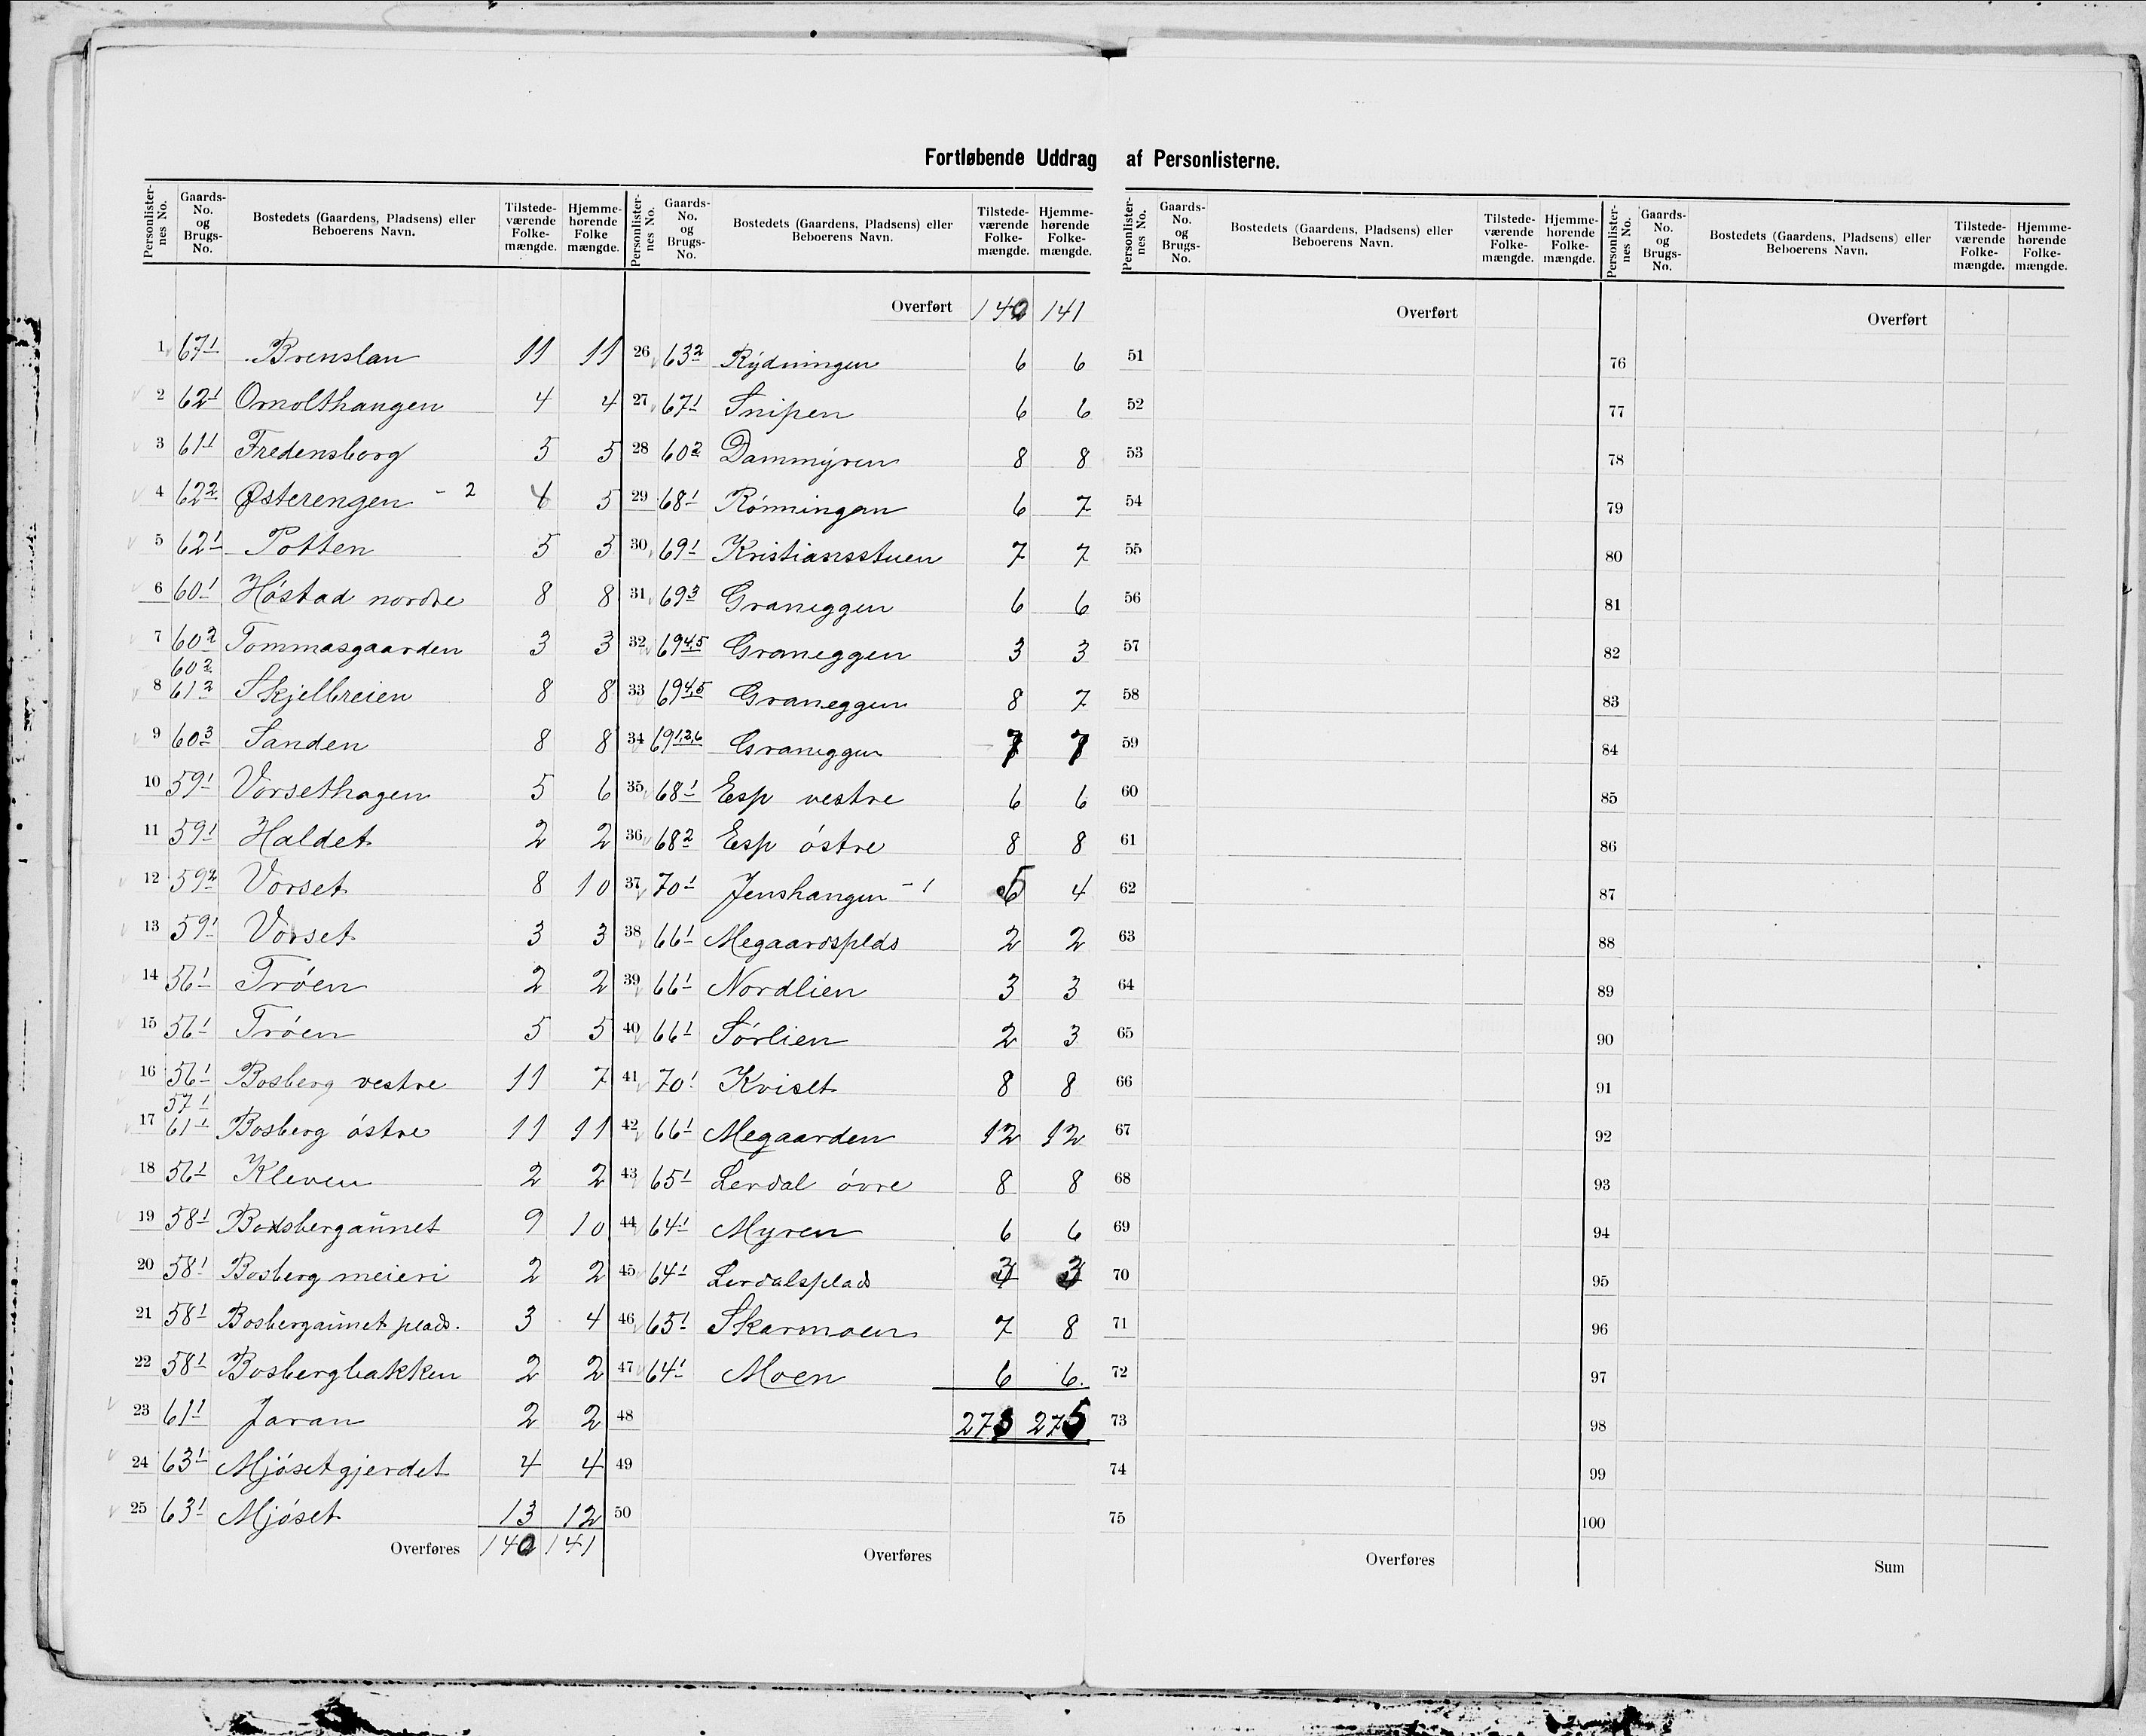 Fortløbende Uddrag af Personlisterne.
Personlisternes No. Gaards-No. og Brugs-No. Bostedets (Gaardens, Pladsens) eller Beboerens Navn. Tilstedeværende Folkemængde. Hjemmehørende Folkemængde.
1 67 1 Brenslan 11 11
2 62 1 Omolthangen 4 4
3 61 1 Fredensborg 5 5
4 62 2 Østerengen - 2 4 5
5 62 1 Potten 5 5
6 60 1 Höstad nordre 8 8
7 60 2 Tommasgaarden 3 3
8 60 2 61 2 Skjelbreien 8 8
9 60 3 Sanden 8 8
10 59 1 Vorsethagen 5 6
11 59 1 Haldet 2 2
12 59 2 Vorset 8 10
13 59 1 Vorset 3 3
14 56 1 Tröen 2 2
15 56 1 Tröen 5 5
16 56 1 Bosberg vestre 11 7
17 57 1 61 1 Bosberg östre 11 11
18 56 1 Kleven 2 2
19 58 1 Bosbergaunet 9 10
20 58 1 Bosberg meieri 2 2
21 58 1 Bosbergaunet plads. 3 4
22 58 1 Bosbergbakken 2 2
23 61 1 Jaran 2 2
24 63 1 Mjösetgjerdet 4 4
25 63 1 Mjöset 13 12
Overføres 140 141
Personlisternes No. Gaards-No. og Brugs-No. Bostedets (Gaardens, Pladsens) eller Beboerens Navn. Tilstedeværende Folkemængde. Hjemmehørende Folkemængde.
Overført 140 141
26 63 2 Rydningen 6 6
27 67 1 Snipen 6 6
28 60 2 Dammyren 8 8
29 68 1 Rönningen 6 7
30 69 1 Kristiansstuen 7 7
31 69 3 Graneggen 6 6
32 69 4,5 Graneggen 3 3
33 69 4,5 Graneggen 8 7
34 69 1,2,6 Graneggen 7 7
35 68 1 Esp vestre 6 6
36 68 2 Esp östre 8 8
37 70 1 Jenshangen - 1 5 4
38 66 1 Megaardsplds 2 2
39 66 1 Nordlien 3 3
40 66 1 Sörlien 2 3
41 70 1 Kviset 8 8
42 66 1 Megaarden 12 12
43 65 1 Lerdal övre 8 8
44 64 1 Myren 6 6
45 64 1 Lerdalsplads 3 3
46 65 1 Skarmoen 7 8
47 64 1 Moen 6 6.
48 273 275
49
50
Overføres
Personlisternes No. Gaards-No. og Brugs-No. Bostedets (Gaardens, Pladsens) eller Beboerens Navn. Tilstedeværende Folkemængde. Hjemmehørende Folkemængde.
Overført
51
52
53
54
55
56
57
58
59
60
61
62
63
64
65
66
67
68
69
70
71
72
73
74
75
Overføres
Personlisternes No. Gaards-No. og Brugs-No. Bostedets (Gaardens, Pladsens) eller Beboerens Navn. Tilstedeværende Folkemængde. Hjemmehørende Folkemængde.
Overført
76
77
78
79
80
81
82
83
84
85
86
87
88
89
90
91
92
93
94
95
96
97
98
99
100
Sum